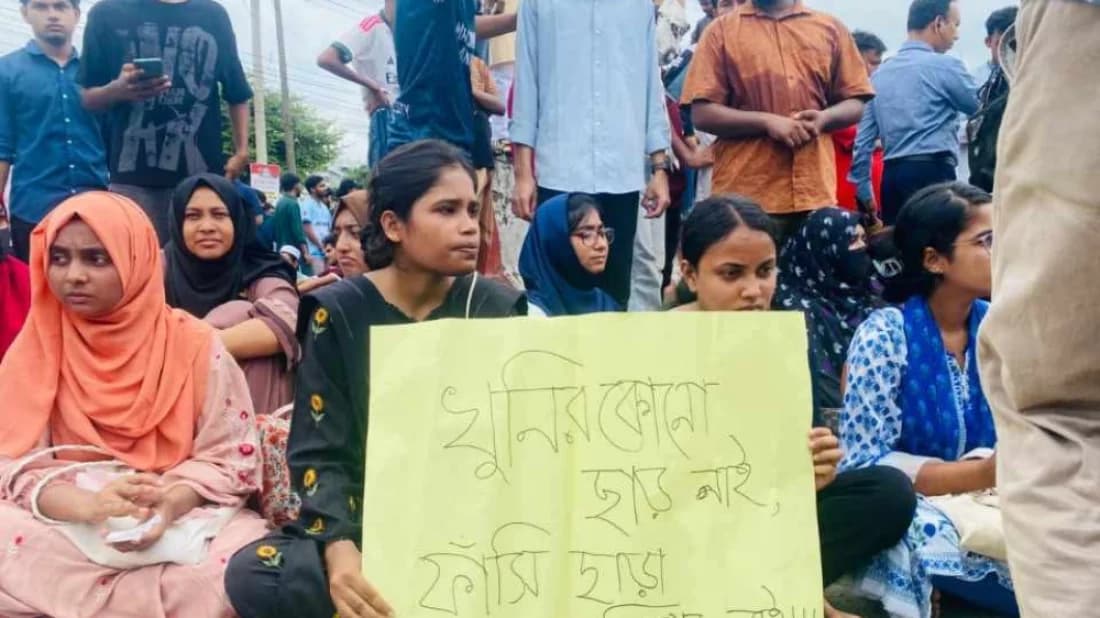 খুনির কোনো
ছাড় নাই,
ফাঁসি ছাড়া